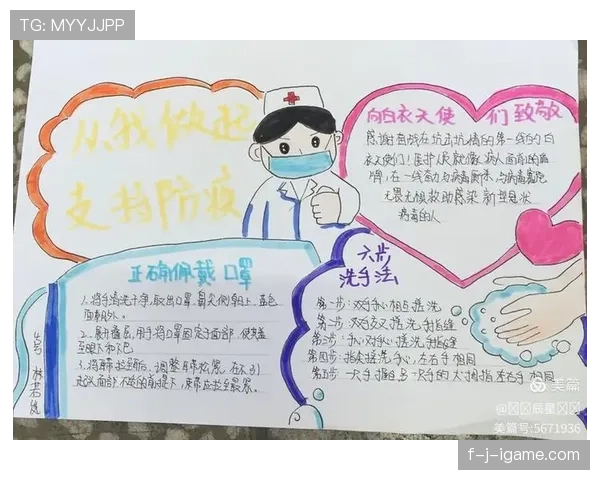 TG: MYYJJPP
从我做起
支持防疫
向白衣天使们致敬
感谢奋战在抗击疫情的第一线的白
衣天使们!医护人员就像病人面前的盾
牌,在一线奋力与病毒斯杀,与病毒赛跑
无畏无惧救助感染新型冠状
病毒的人
正确佩戴口罩
1、将手清洗干净,取出口罩,鼻夹侧朝上,蓝色
面朝外。
2、展开叠层,用手将口罩固定于面部,使其盖
至眼下和下巴
六步
洗手法
第一步:双手手心相互搓洗
第二步:双手交叉搓洗手指缝
第三步:手心对手心搓洗手指缝
第四步:指尖搓洗手心,左右手相同
第五步:一只手握住另一只手的大拇指左右手相同
美篇
美篇号:5671936
f-j-igame.com